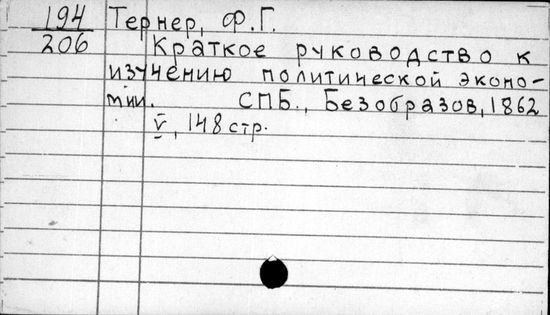 194 Тернер, Ф.Г.
206 Краткое руководство к
изучению политической эконо-
мии. СПБ., Безобразов, 1862
V, 148 стр.